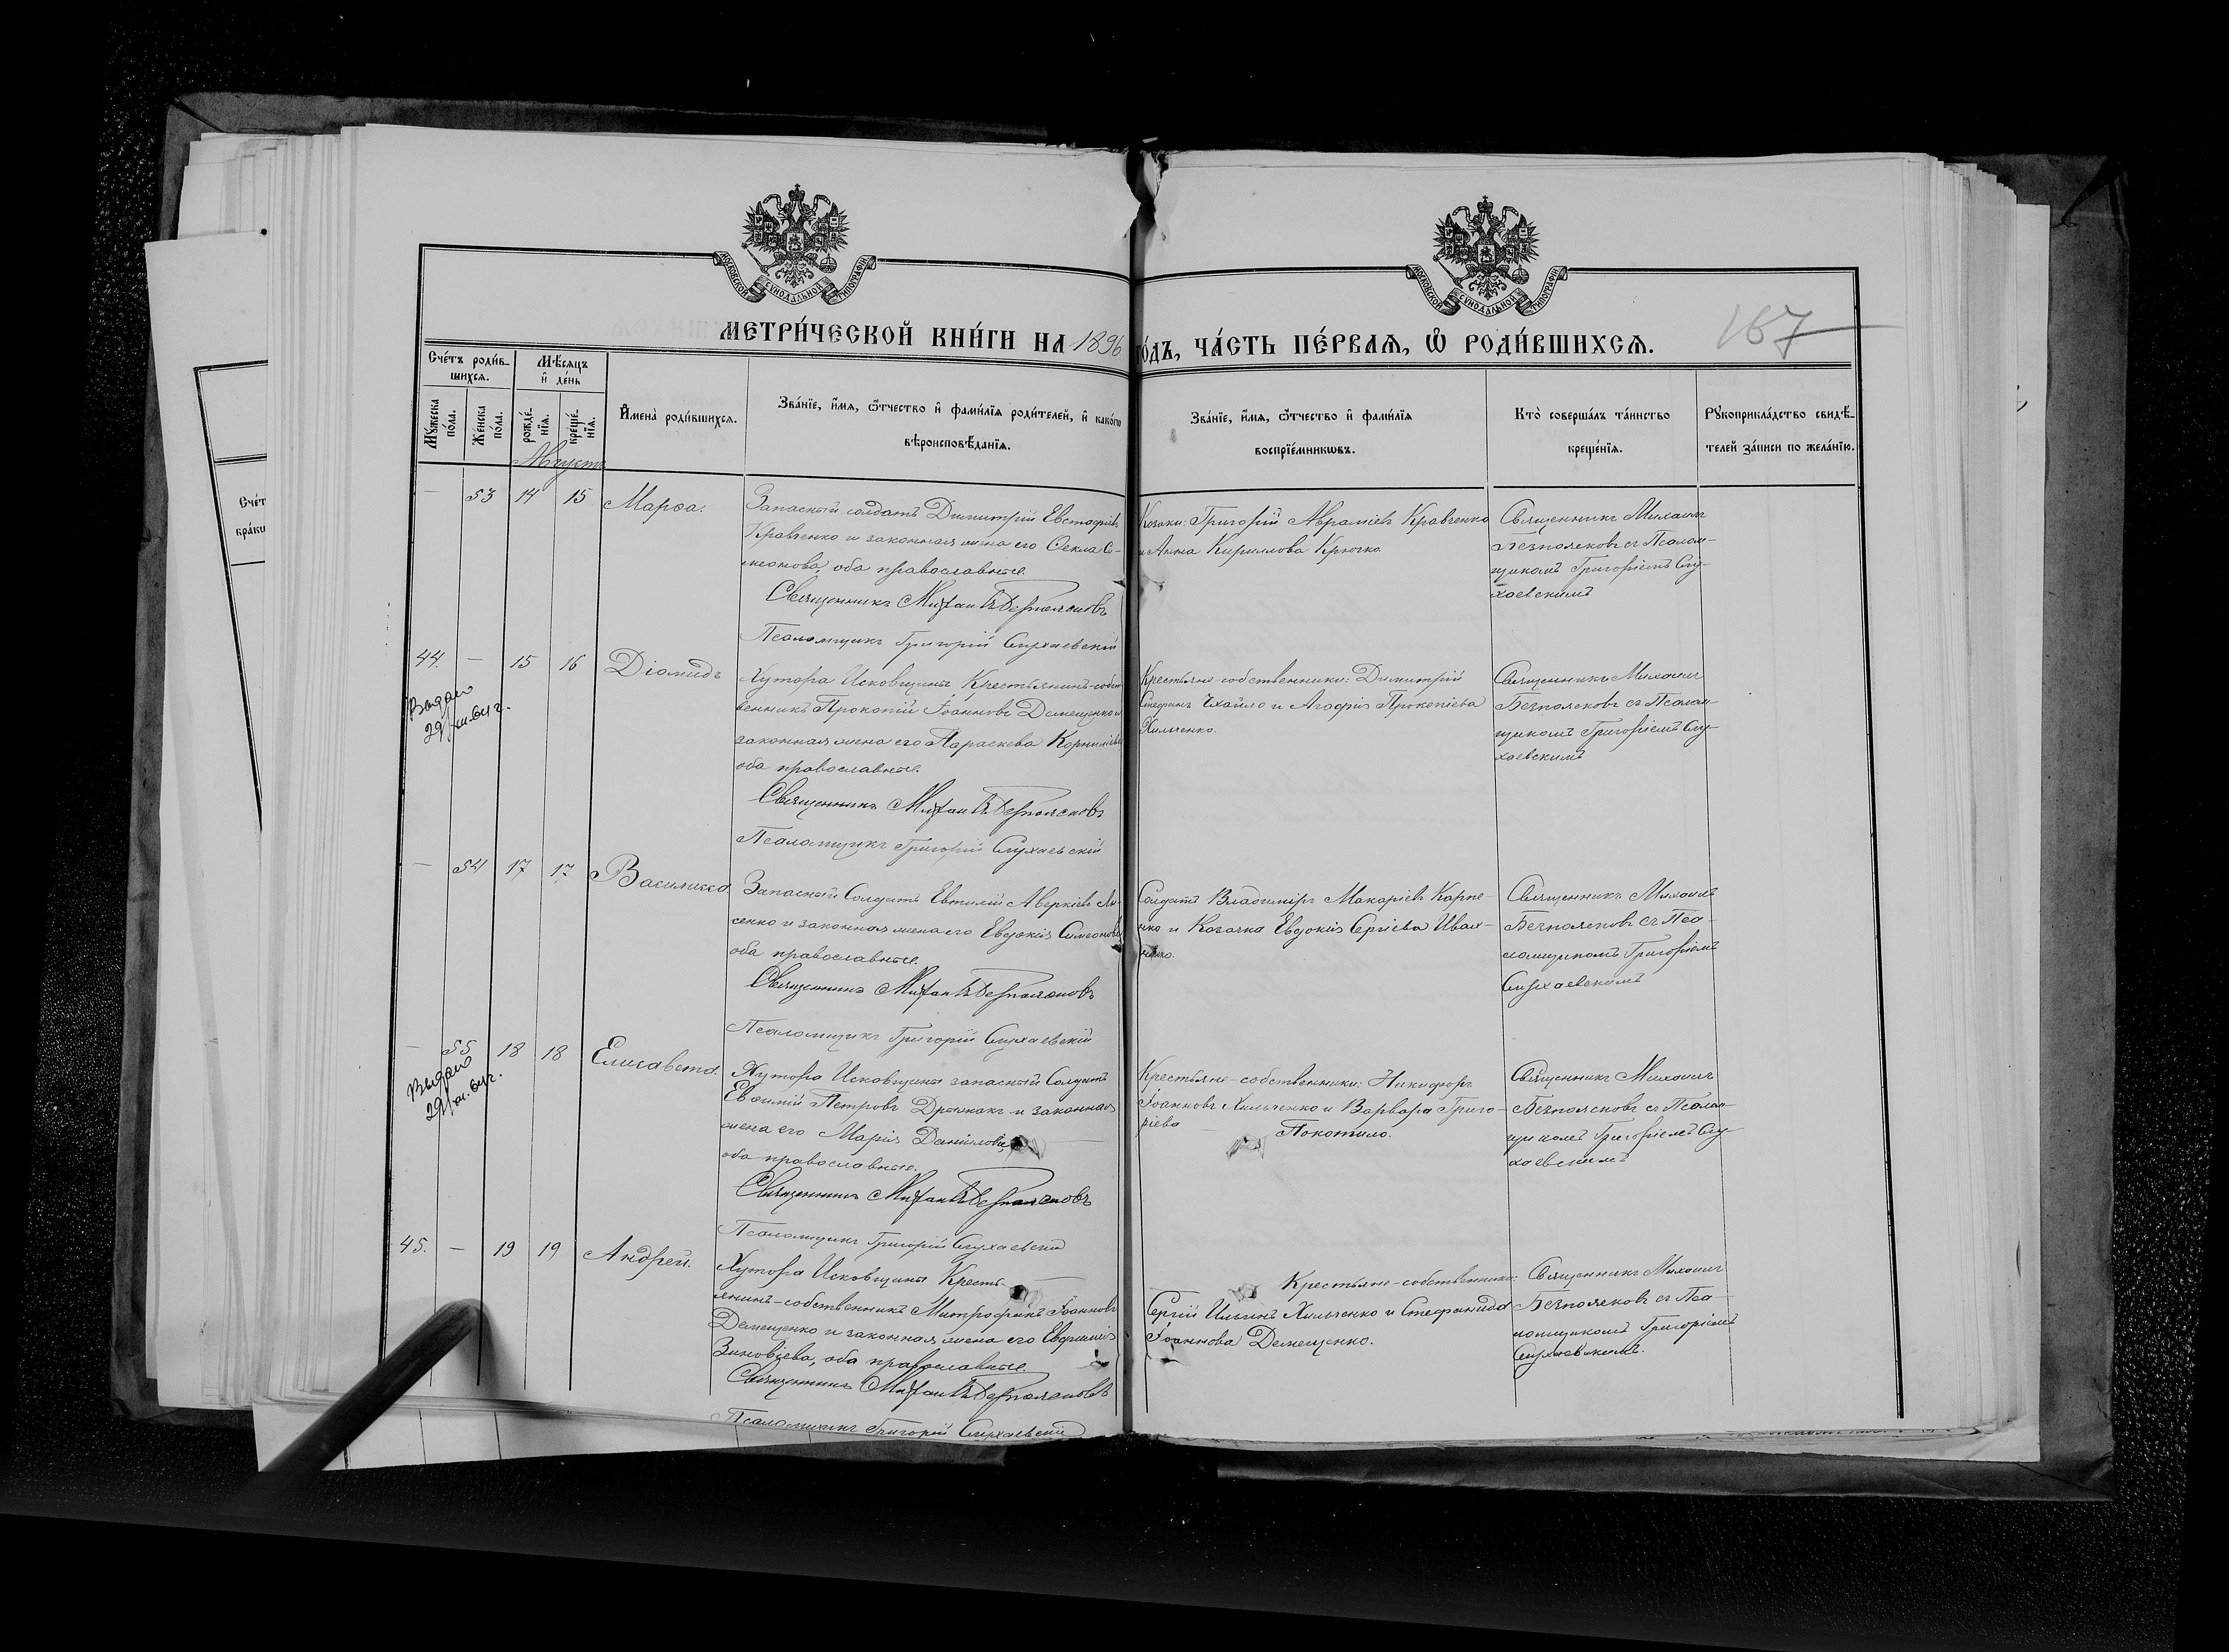 МОСКОВСКОЙ СУНОДАЛЬНОЙ ТИПОГРАФІИ
МОСКОВСКОЙ СУНОДАЛЬНОЙ ТИПОГРАФІИ
МЕТРИ́ЧЕСКОЙ КНИ́ГИ НА 1896 ГО́ДЪ, ЧА́СТЬ ПЕ́РВАѦ, Ѽ РОДИ́ВШИХСѦ.
167
Сче́тъ роди́в-
шихсѧ.
Мѣ́сѧцъ
и҆ де́нь
Мꙋ́жеска
по́ла.
Же́нска
по́ла.
рожде́-
нїѧ.
креще́-
нїѧ.
И҆мена̀ роди́вшихсѧ.
Зва́нїе, и҆́мѧ, ѻ҆́тчество и҆ фами́лїѧ роди́телей, и҆ како́гѡ
вѣроисповѣ́данїѧ.
Зва́нїе, и҆́мѧ, ѻ҆́тчество и҆ фами́лїѧ
воспрїе́мникѡвъ.
Кто̀ соверша́лъ та́инство
креще́нїѧ.
Рꙋкоприкла́дство свидѣ́-
телей за́писи по жела́нїю.
Августъ
— 53 14 15 Марѳа.
Запасный солдатъ Димитрій Евстафіевъ
Кравченко и законная жена его Ѳекла Си-
меонова, оба православные.
Священникъ Михаилъ Безполсковъ
Псаломщикъ Григорій Слухаевскій
Козаки: Григорій Авраміевъ Кравченко
и Анна Кириллова Крючко
Священникъ Михаилъ
Безполсковъ съ Псалом-
щикомъ Григоріемъ Слу-
хаевскимъ
44. — 15 16 Діомидъ
Выдано
29/
Хутора Исковщины Крестьянинъ-собст
венникъ Прокопій Іоанновъ Демещенко и
законная жена его Параскева Корниліева
оба православные.
Священникъ Михаилъ Безполсковъ
Псаломщикъ Григорій Слухаевскій
Крестьяне-собственники: Димитрій
Стефановъ Чхайло и Агафія Прокопіева
Хильченко.
Священникъ Михаилъ
Безполсковъ съ Псалом-
щикомъ Григоріемъ Слу-
хаевскимъ
— 54 17 17 Василисса
Запасный Солдатъ Евтихій Аверкіевъ Ли-
сенко и законная жена его Евдокія Симеонова
оба православные.
Священникъ Михаилъ Безполсковъ
Псаломщикъ Григорій Слухаевскій
Солдатъ Владиміръ Макаріевъ Карпе-
нко и Козачка Евдокія Сергіева Ивах-
ненко.
Священникъ Михаилъ
Безполсковъ съ Пса-
ломщикомъ Григоріемъ
Слухаевскимъ
— 55 18 18 Елисавета.
Выдано
29/
Хутора Исковщины запасный Солдатъ
Евѳимій Петровъ и законная
жена его Марія Даніилова
оба православные.
Священникъ Михаилъ Безполсковъ
Псаломщикъ Григорій Слухаевскій
Крестьяне-собственники: Никифоръ
Іоанновъ Хильченко и Варвара Григо-
ріева Покотило.
Священникъ Михаилъ
Безполсковъ съ Псалом-
щикомъ Григоріемъ Слу-
хаевскимъ
45. — 19 19 Андрей.
Хутора Исковщины Кресть-
янинъ-собственникъ Митрофанъ Іоанновъ
Демещенко и законная жена его Евфимія
Зиновіева, оба православные.
Священникъ Михаилъ Безполсковъ
Псаломщикъ Григорій Слухаевскій
Крестьяне-собственники:
Сергій Ильинъ Хильченко и Стефанида
Іоаннова Демещенко.
Священникъ Михаилъ
Безполсковъ съ Пса-
ломщикомъ Григоріемъ
Слухаевскимъ.
Сче́т
бра́ки